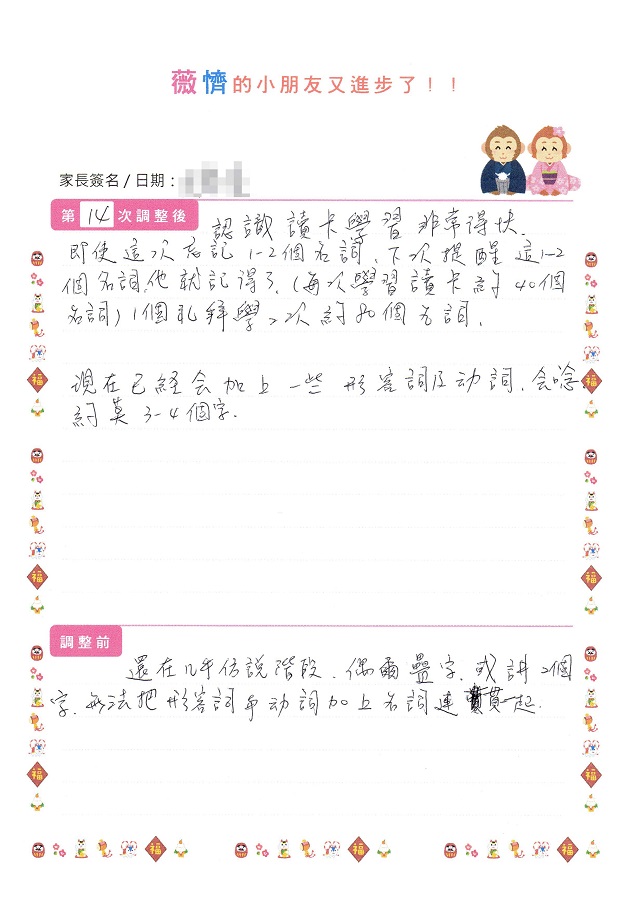 薇憪的小朋友又進步了！！
家長簽名 / 日期：
第 14 次調整後
認識讀卡學習非常得快.
即使這次忘記1-2個名詞、下次提醒這1-2
個名詞他就記得了.(每次學習讀卡約40個
名詞)1個礼拜學2次約80個名詞.
現在已經会加上一些形容詞及动詞.会唸
約莫3-4個字.
調整前
還在几乎仿說階段.偶爾疊字.或講2個
字.無法把形容詞或动詞加上名詞連貫一起.
福
福
福
福
福
福
福
福
福